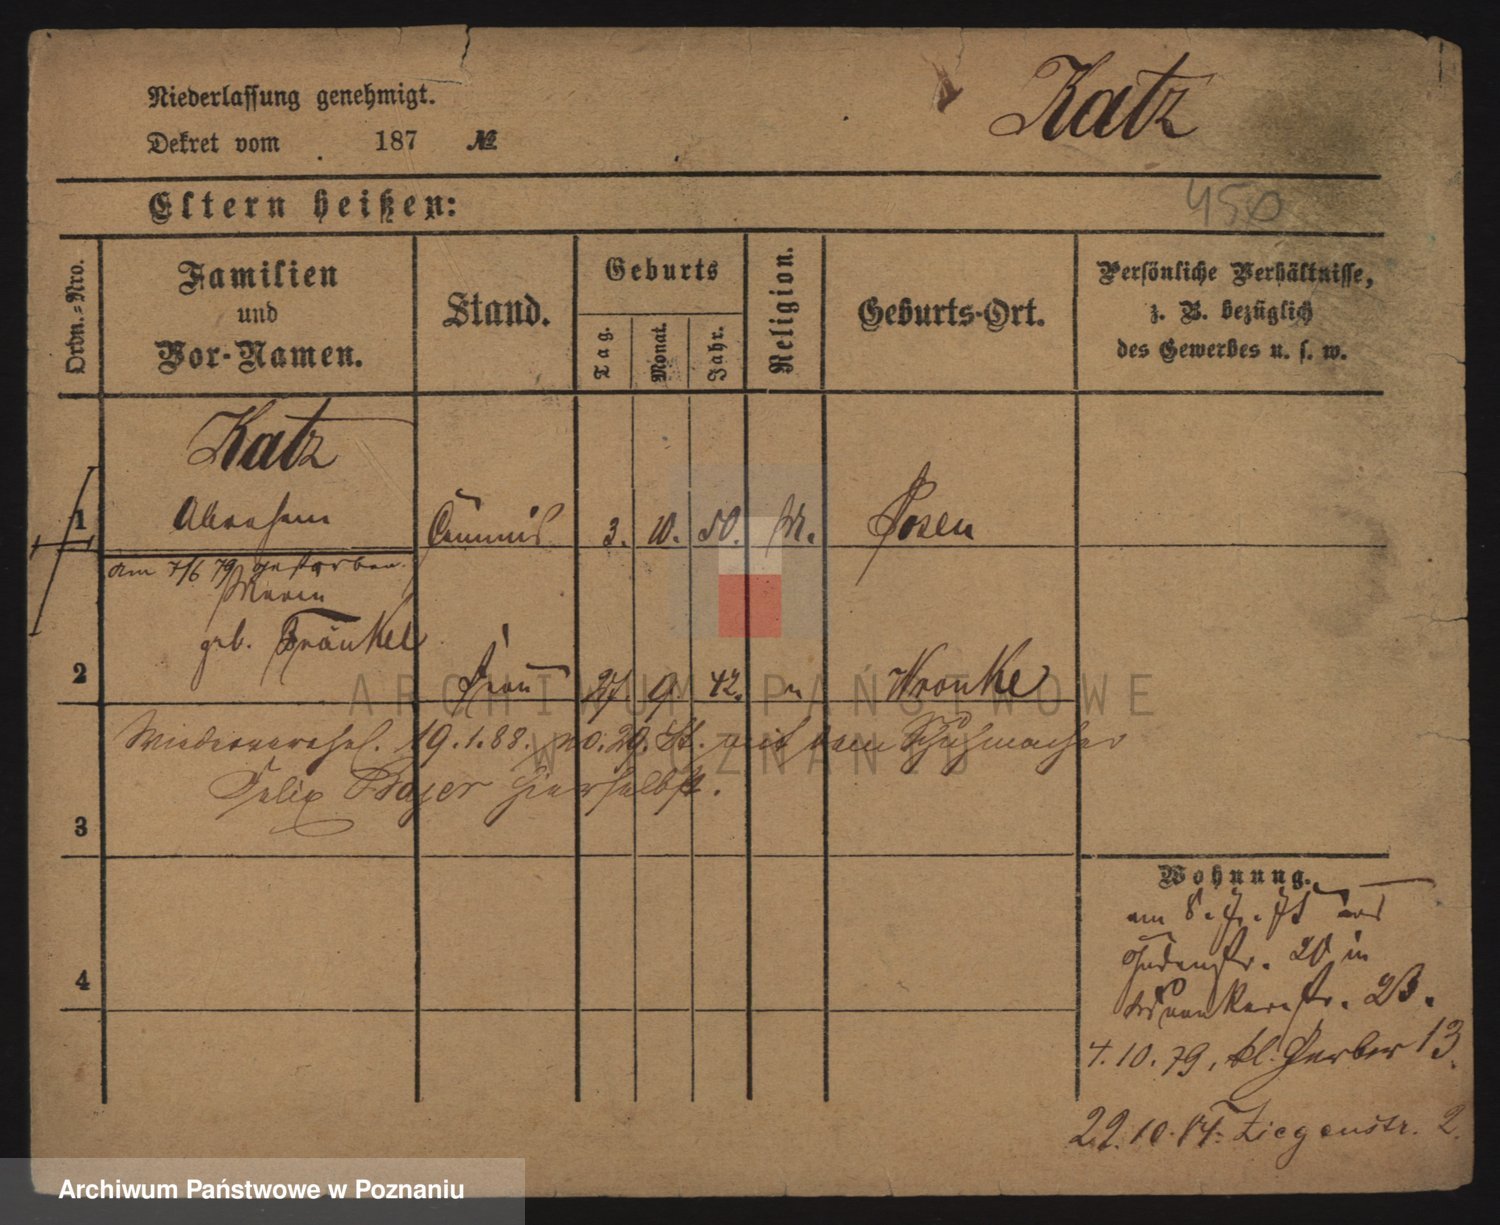 Niederlassung genehmigt.
Katz
Dekret vom 187 №
450
Eltern heißen:
Ordn.-Nro.
Familien
und
Vor-Namen.
Stand.
Geburts
Tag.
Monat.
Jahr.
Religion.
Geburts-Ort.
Persönliche Verhältnisse,
z. B. bezüglich
des Gewerbes u. s. w.
Katz
1 Abraham Commis 3. 10. 50. M. Posen
am 7/6 79 gestorben.
Marie
geb. Fränkel
2 Frau 27. 9. 42. Wronke
Wiederverehel. 19.1.88. no. 29. St. mit dem Schuhmacher
Felix hierselbst.
3
Wohnung.
am 8. 7. 75 aus
Judenstr. 20 in
Wronkerstr. 23.
4
4.10.79. kl. Gerber 13.
22.10.84. Ziegenstr. 2.
ARCHIWUM PAŃSTWOWE
W POZNANIU
Archiwum Państwowe w Poznaniu